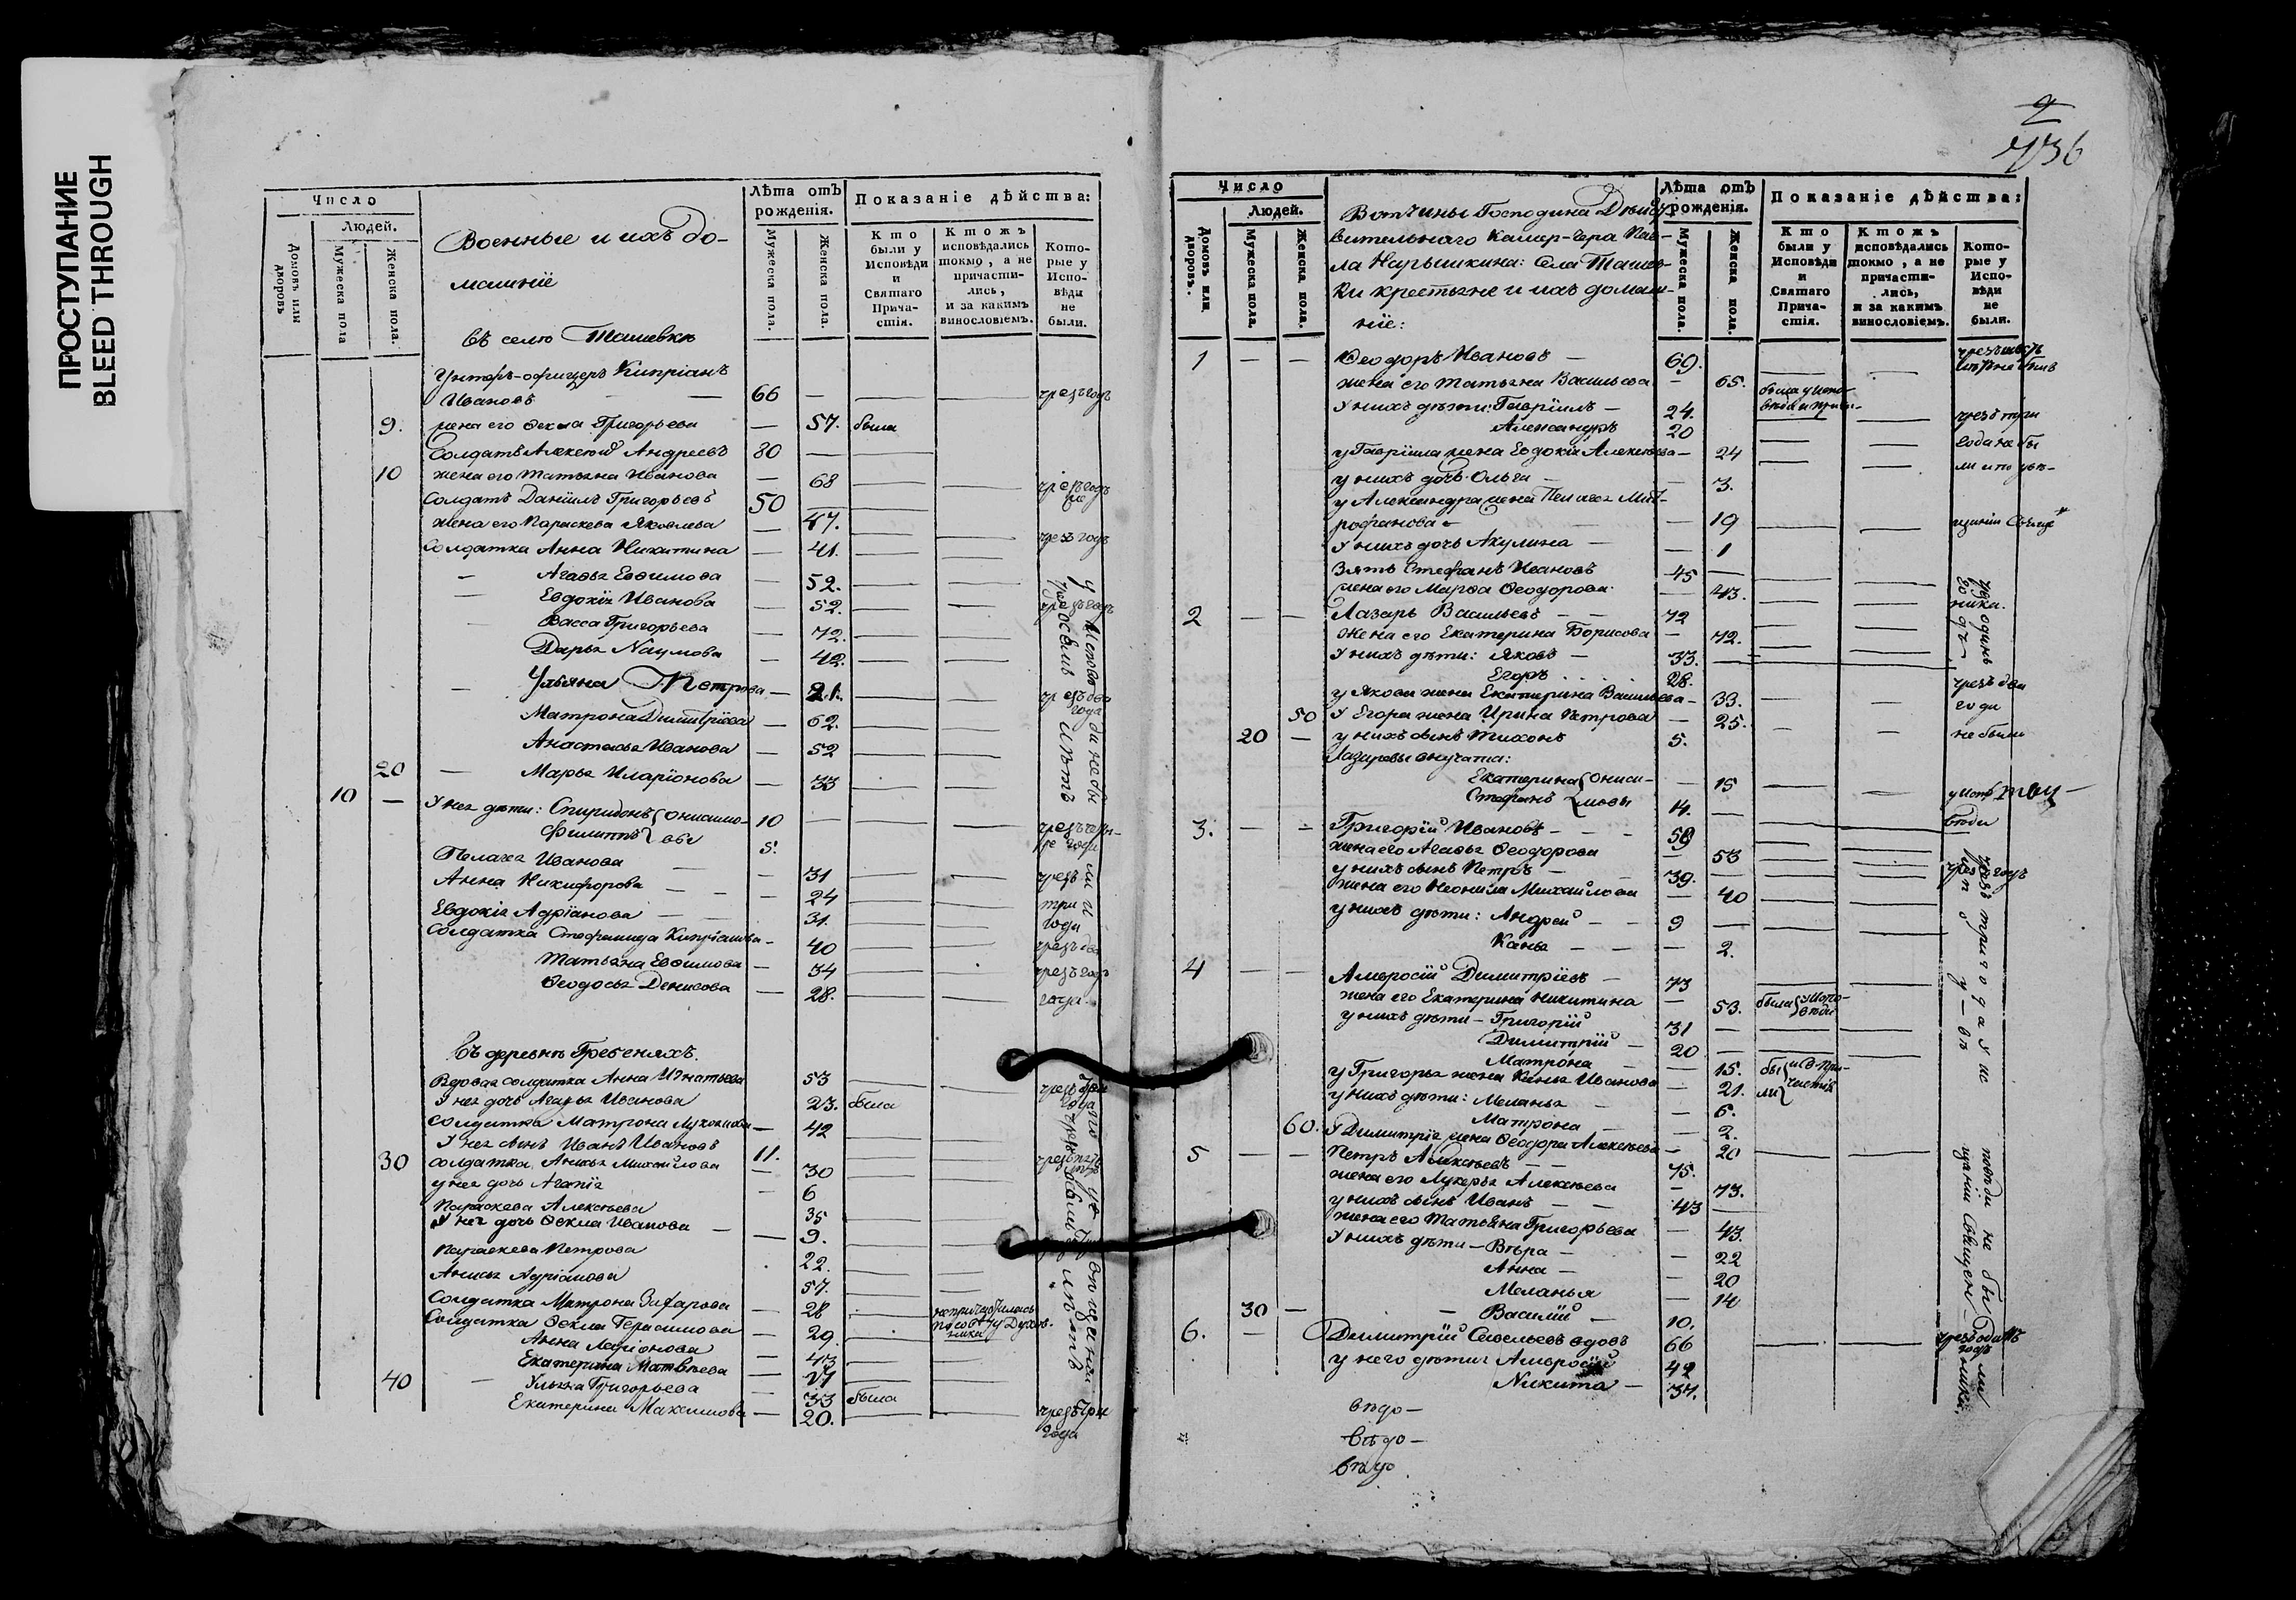 ПРОСТУПАНИЕ
BLEED THROUGH
Число
Людей.
Домовъ или дворовъ
Мужеска пола
Женска пола.
Военные и ихъ до-
машнiе
въ селѣ Ташевкѣ
Лѣта отъ рожденiя.
Мужеска пола.
Женска пола.
Показанiе дѣйства:
Кто были у Исповѣди и Святаго Прича-стiя.
Ктожъ исповѣдались токмо, а не причасти-лись, и за какимъ винословiемъ.
Кото-рые у Испо-вѣди не были.
Унтеръ-офицеръ Кипрiанъ
Ивановъ — 66 — чрезъ годъ
9. жена его Ѳекла Григорьева — 57. была
Солдатъ Алексѣй Андреевъ 80 —
10 жена его Татьяна Иванова — 68 чрезъ годъ
Солдатъ Данiилъ Григорьевъ 50
жена его Параскева Яковлева — 47.
Солдатка Анна Никитина — 41. чрезъ годъ
Агаѳья Евѳимова — 52.
Евдокiя Иванова — 52.
Васса Григорьева — 72.
Дарья Наумова — 42.
Ульяна Петрова — 21. чрезъ два года
Матрона Димитрiева — 62.
Анастасья Иванова — 52
20 — Марья Иларiонова — 33
10 — У нея дѣти: Спиридонъ Онисимо- 10
Филиппъ вы 5. чрезъ четы-ре года
Пелагея Иванова — 31 чрезъ
Анна Никифорова — 24 три
Евдокiя Адрiанова — 31. года
Солдатка Стефанида Кипрiанова — 40 чрезъ два
Татьяна Евѳимова — 34 чрезъ годъ
Ѳеодосья Денисова — 28. года
въ деревнѣ Гребеняхъ.
Вдовая солдатка Анна Игнатьева 53 чрезъ два
У нея дочь Агаѳья Иванова 23. была года
Солдатка Матрона — 42
У нея сынъ Иванъ Ивановъ 11.
30 солдатка Анисья Михайлова — 30
у нея дочь Агапiя — 6
Параскева Алексѣева 35
У нея дочь Ѳекла Иванова — 9.
Параскева Петрова 22.
Анисья Адрiанова 57.
Солдатка Матрона Захарова — 28
Солдатка Ѳекла Герасимова — 29. не причастилась по совѣту Духов-ника
Анна Ларiонова — 43
Екатерина Матвѣева — 27
40 — Улька Григорьева — 33 была
Екатерина Максимова — 20. чрезъ три
года
2
736
Число
Людей.
Домовъ или дворовъ.
Мужеска пола.
Женска пола.
Вотчины Господина Дѣйст-
вительнаго Камер-гера Пав-
ла Нарышкина: Села Ташев-
ки крестьяне и ихъ домаш-
нiе:
Лѣта отъ рожденiя.
Мужеска пола.
Женска пола.
Показанiе дѣйства:
Кто были у Исповѣди и Святаго Прича-стiя.
Ктожъ исповѣдались токмо, а не причасти-лись, и за какимъ винословiемъ.
Кото-рые у Испо-вѣди не были.
1 — — Ѳеодоръ Ивановъ — 69.
жена его Татьяна Васильева — 65.
У нихъ дѣти: Гаврiилъ — 24. чрезъ три
Александръ 20 года не бы
у Гаврiила жена Евдокiя Алексѣева — 24 ли и по увѣ-
у нихъ дочь Ольга — 3.
у Александра жена Пелагея Мит-
рофанова — 19 щанiи Священ
У нихъ дочь Акулина — 1
Зять Стефанъ Ивановъ 45 —
жена его Марѳа Ѳеодорова — 43. ника.
2 — — Лазарь Васильевъ — 72
Жена его Екатерина Борисова — 72.
У нихъ дѣти: Яковъ — 33.
Егоръ 28.
у Якова жена Екатерина Васильева — 33. чрезъ два
50 У Егора жена Ирина Петрова — 25. года
20 — у нихъ сынъ Тихонъ 5. не были
Лазаревы внучата:
Екатерина Ониси- — 15
Стефанъ мовы 14. —
3. — — Григорiй Ивановъ — 59
жена его Агаѳья Ѳеодорова — 53
у нихъ сынъ Петръ — 39. чрезъ годъ
жена его Неонила Михайлова — 40
у нихъ дѣти: Андрей — 9 —
Ксенья — 2.
4 — — Амвросiй Димитрiевъ — 73
жена его Екатерина Никитина — 53. была у Испо-вѣди
у нихъ дѣти — Григорiй 31 —
Димитрiй — 20 —
Матрона — 15.
у Григорья жена Ксенья Иванова — 21.
у нихъ дѣти: Меланья — 6.
Матрона — 2.
60. У Димитрiя жена Ѳеодора Алексѣева — 20
5 — — Петръ Алексѣевъ — 75.
жена его Лукерья Алексѣева — 73.
у нихъ сынъ Иванъ — 43 —
жена его Татьяна Григорьева — 43.
У нихъ дѣти — Вѣра — 22
Анна — 20
Меланья — 14
30 — Василiй — 10.
6. — Димитрiй Савельевъ вдовъ 66 чрезъ одинъ годъ
у него дѣти: Амвросiй 42
Никита — 37.
вѣдо —
вѣдо —
вѣдо